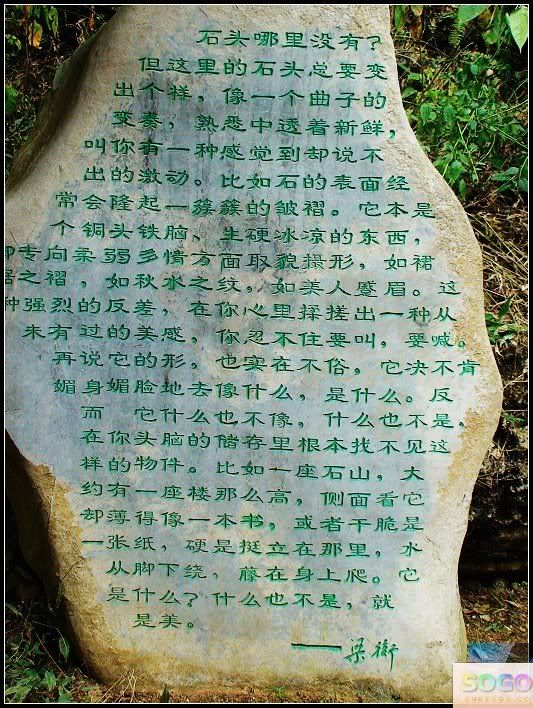 石头哪里没有？
但这里的石头总要变
出个样，像一个曲子的
变奏，熟悉中透着新鲜，
叫你有一种感觉到却说不
出的激动。比如石的表面经
常会隆起一簇簇的皱褶。它本是
个铜头铁脑、生硬冰凉的东西，
却专向柔弱多情方面取貌摄形，如裙
裾之褶，如秋水之纹，如美人蹙眉。这
种强烈的反差，在你心里揉搓出一种从
未有过的美感，你忍不住要叫，要喊。
再说它的形，也实在不俗，它决不肯
媚身媚脸地去像什么，是什么。反
而 它什么也不像，什么也不是，
在你头脑的储存里根本找不见这
样的物件。比如一座石山，大
约有一座楼那么高，侧面看它
却薄得像一本书，或者干脆是
一张纸，硬是挺立在那里，水
从脚下绕，藤在身上爬。它
是什么？什么也不是，就
是美。
——梁衡
SOGO